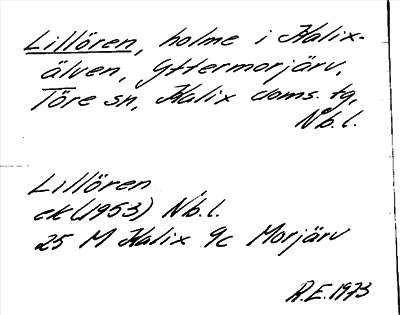 Lillören, holme i Kalix-
älven, Yttermorjärv,
Töre sn, Kalix doms. tg,
Nb.l.
Lillören
ek (1953) Nb.l.
25 M Kalix 9c Morjärv
R.E. 1973